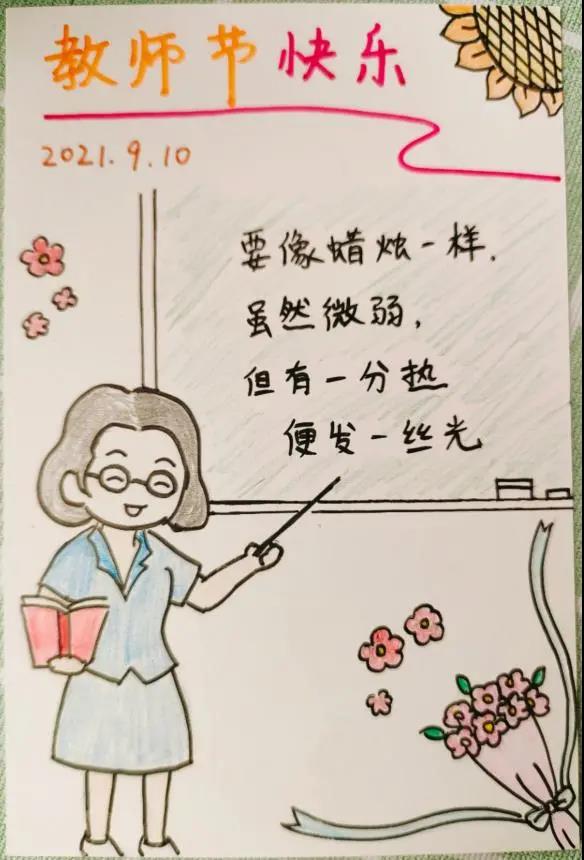 教师节快乐
2021.9.10
要像蜡烛一样.
虽然微弱,
但有一分热
便发一丝光